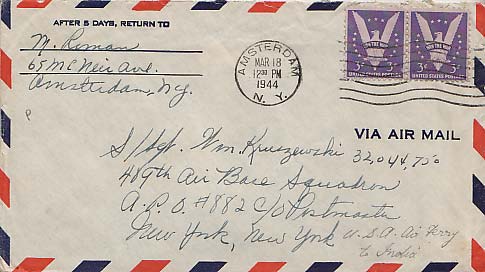 AFTER 5 DAYS, RETURN TO
M. Riman
65 McNeir Ave.
Amsterdam, N.Y.
AMSTERDAM
MAR 18
12 30 PM
1944
N. Y.
3¢ WIN THE WAR 3¢
UNITED STATES POSTAGE
3¢ WIN THE WAR 3¢
UNITED STATES POSTAGE
VIA AIR MAIL
S/Sgt. Wm. Kruszewski 32,044,750
489th Air Base Squadron
A.P.O. #882 c/o Postmaster
New York, New York U.S.A. Air Ferry
to India